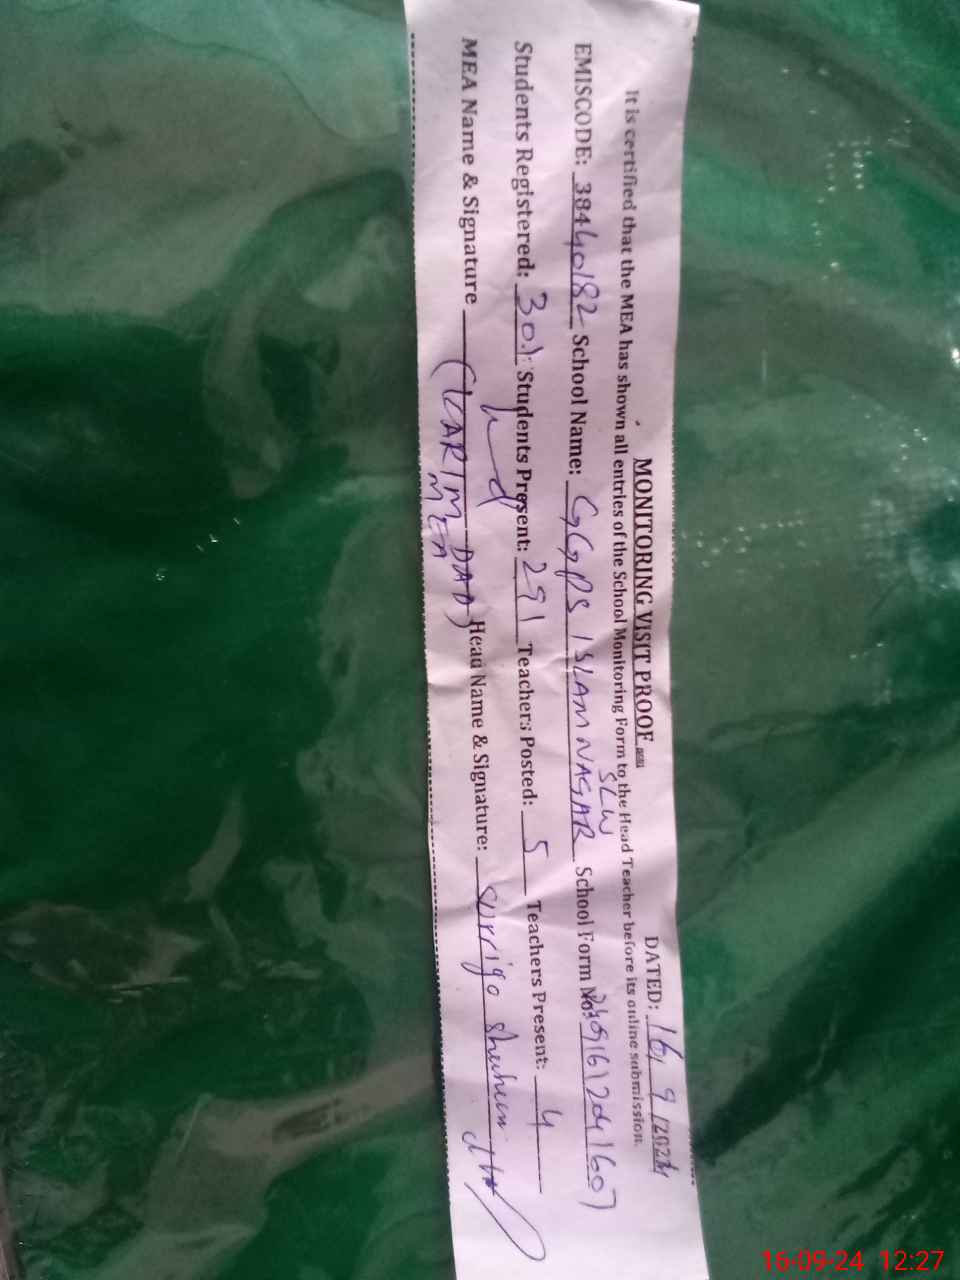 MONITORING VISIT PROOF
DATED: 16/ 9 /2024
It is certified that the MEA has shown all entries of the School Monitoring Form to the Head Teacher before its online submission.
SLW
EMISCODE: 38440182 School Name: GGPS ISLAM NAGAR School Form No:
Students Registered: 301 Students Present: 291 Teachers Posted: 5 Teachers Present: 4
MEA Name & Signature Head Name & Signature:
(KARIM DAD)
MEA
16-09-24 12:27